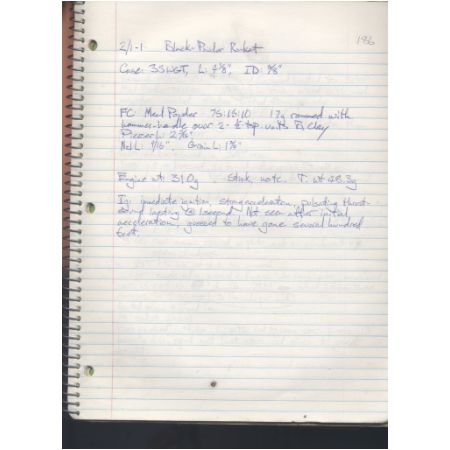 186
2/1-1 Black-Powder Rocket
Case: 35WGT, L: 4⅞", ID: ⅝"
FC: Meal Powder 75:15:10 17g rammed with
hammer-handle over 2- ½ tsp. units B. clay
L: 2
Noz L: 7/16" Grain L: 1⅞"
Engine wt: 31.0g Stick, note. T wt 48.3g
Ig: immediate ignition, strong acceleration, pulsating thrust-
sound lasting 1 second. Not seen after initial
acceleration, guessed to have gone several hundred
feet.